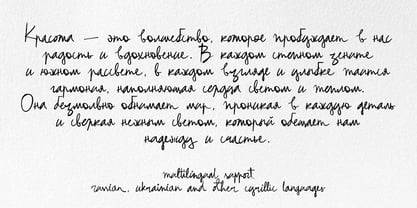 Красота — это волшебство, которое пробуждает в нас
радость и вдохновение. В каждом степном зените
и южном рассвете, в каждом взгляде и улыбке таится
гармония, наполняющая сердца светом и теплом.
Она безмолвно обнимает мир, проникая в каждую деталь
и сверкая нежным светом, который обещает нам
надежду и счастье.
multilingual support
russian, ukrainian and other cyrillic languages